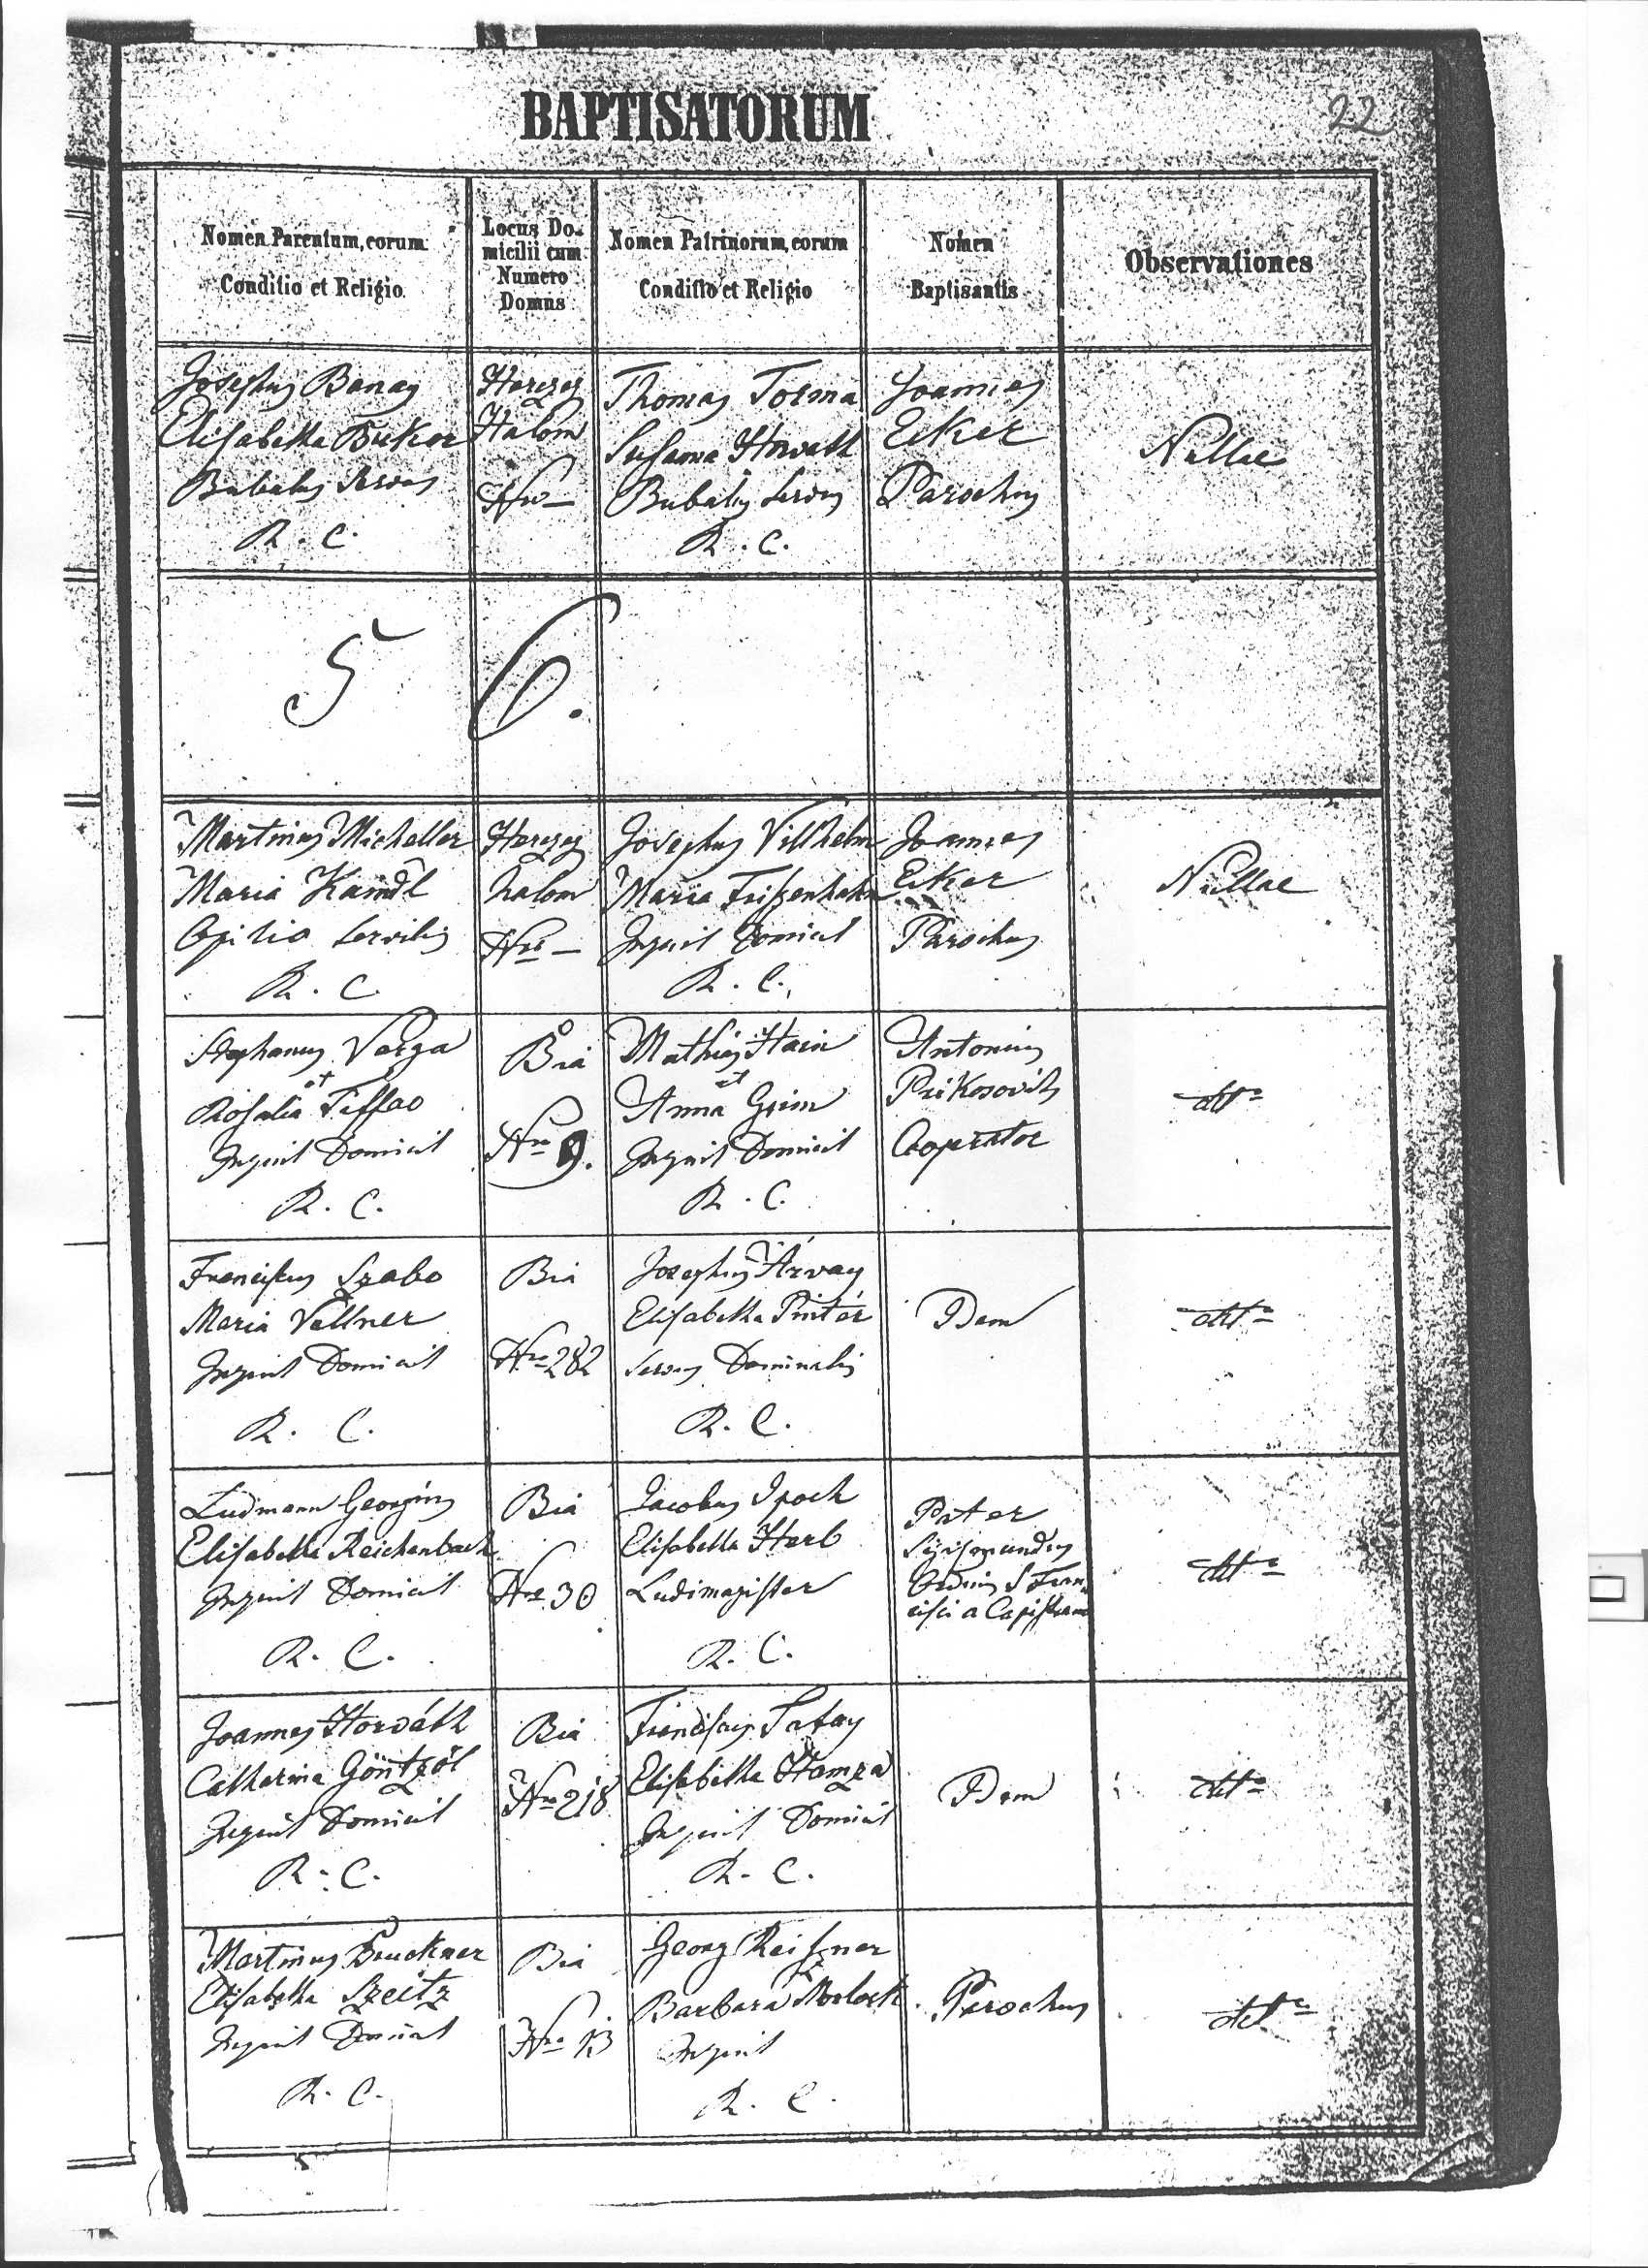 BAPTISATORUM
22
Nomen Parentum, eorum
Conditio et Religio
Locus Do-
micilii cum
Numero
Domus
Nomen Patrinorum, eorum
Conditio et Religio
Nomen
Baptisantis
Observationes
Josephus
Elisabetha Bukor
Bubulcus Servus
R. C.
Herczeg
Halom
Nro —
Thomas Torma
Susanna Horvath
Servus
R. C.
Joannes
Ecker
Parochus
Nullae
5 6.
Martinus Micheller
Maria Kaindl
Opilio Servilis
R. C.
Herczeg
halom
Nro —
Josephus Villhelm
Maria
Inquil Domicil
R. C.
Joannes
Ecker
Parochus
Nullae
Stephanus Varga
et
Rosalia
Inquil Domicil
R. C.
Bia
Nro 9.
Mathias Hain
et
Anna Grim
Inquil Domicil
R. C.
Antonius
Cooperator
dtto
Franciscus Szabo
Maria Vellner
Inquil Domicil
R. C.
Bia
Nro 282
Josephus Árvay
Elisabetha Pintér
Servus Dominalis
R. C.
Idem
dtto
Ludmann Georgius
Elisabetha Reichenbach
Inquil Domicil
R. C.
Bia
Nro 30
Jacobus Ipoch
Elisabetha Herb
Ludimagister
R. C.
Pater
Sigismundus
Ordinis S Fran
cisci a Capistrano
dtto
Joannes Horváth
Catharina Göntzöl
Inquil Domicil
R. C.
Bia
Nro 218
Franciscus Patay
Elisabetha Hamza
Inquil Domicil
R. C.
Idem
dtto
Martinus Bruckner
Elisabetha Szeitz
Inquil Domicil
R. C.
Bia
Nro 13
Georg Reiszner
Barbara Morlock
Inquil
R. C.
Parochus
dtto